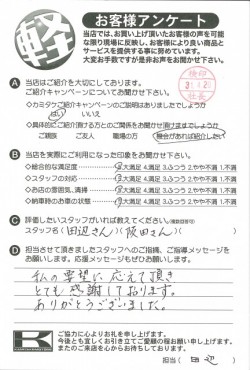 軽
お客様アンケート
当店では、お買い上げ頂いたお客様の声を可能
な限り現場に反映し、お客様により良い商品と
サービスを提供する事に努めています。
大変お手数ですが是非お声をお聞かせ下さい。
検印
社長
A 当店はご紹介を大切にしております。
ご紹介キャンペーンについてお聞かせ下さい。
◇カミタケご紹介キャンペーンのご説明はありましたでしょうか
はい いいえ
◇具体的にご紹介頂ける方とのご関係をお聞かせ頂けますでしょうか
ご親類 ご友人 職場の方 機会があれば紹介したい
B 当店を実際にご利用になった印象をお聞かせ下さい。
◇総合的な満足度 5大満足 4.満足 3.ふつう 2.やや不満 1.不満
◇スタッフの対応 5大満足 4.満足 3.ふつう 2.やや不満 1.不満
◇お店の雰囲気、清掃 5大満足 4.満足 3.ふつう 2.やや不満 1.不満
◇納車時のお車の状態 5大満足 4.満足 3.ふつう 2.やや不満 1.不満
C 評価したいスタッフがいれば教えてください。(複数回答可)
スタッフ名(田辺さん)(阪田さん)
D 担当させて頂きましたスタッフへのご指摘、ご指導メッセージを
お願いします。応援メッセージもぜひお願いします。
私の要望に応えて頂き
とても感謝しております。
ありがとうございました。
K
ご協力に心よりお礼を申し上げます。
今後とも宜しくお引き立てご愛顧の程お願い申し上げます。
またのご来店を心からお待ちしております。
担当( 田辺 )